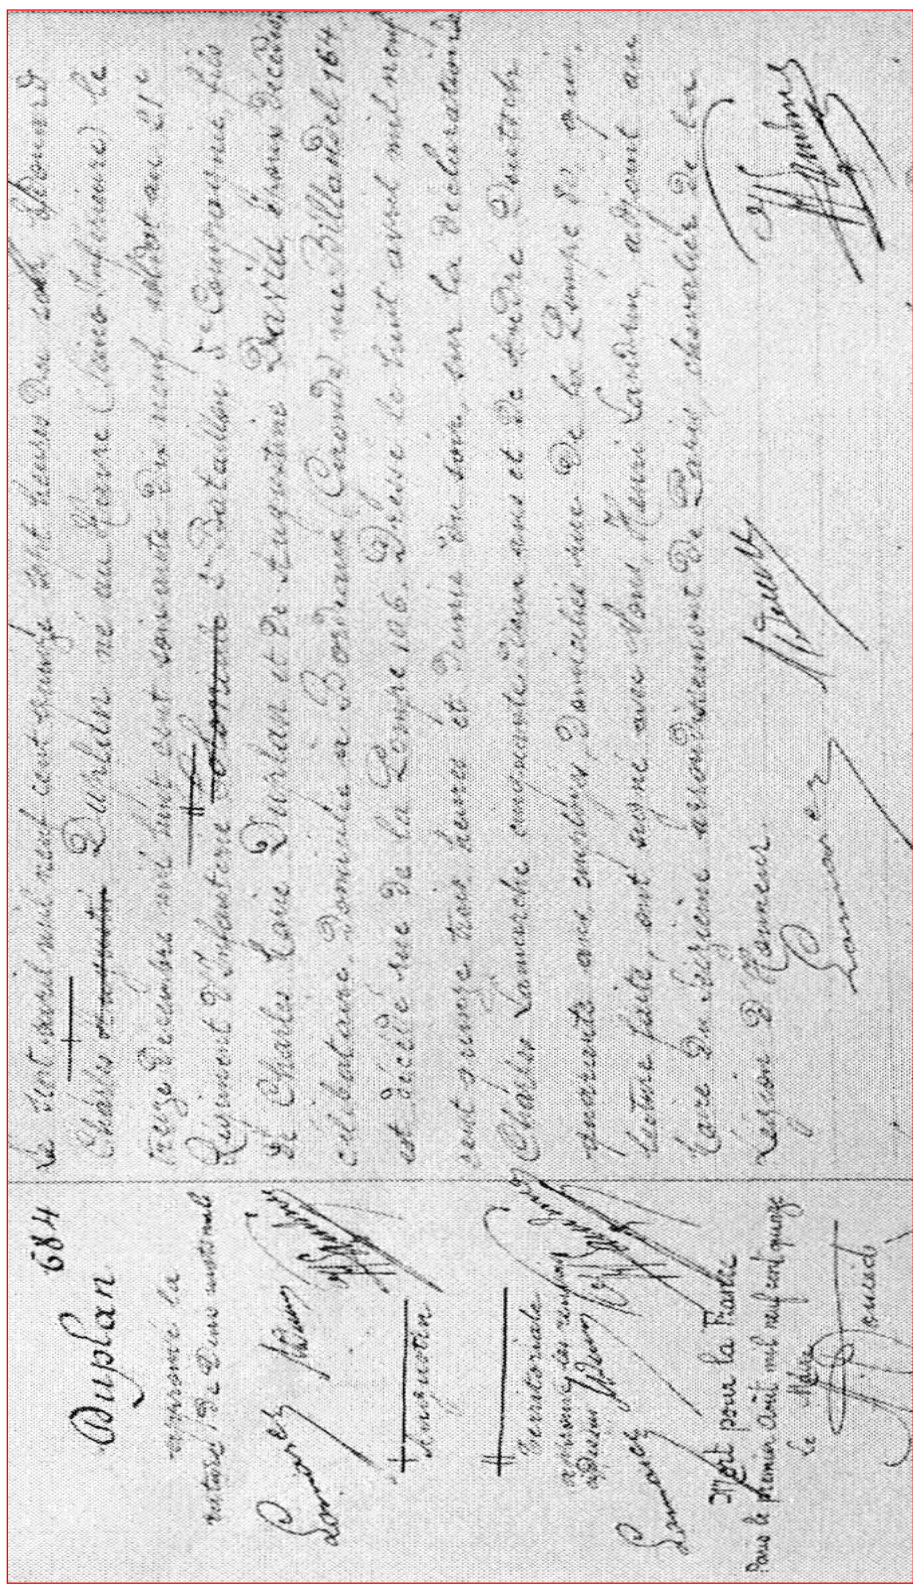 684
Duplan
approuvé la
rature de deux mots nuls
† Augustin
# Territoriale
approuvé les renvois
ci-dessus
Mort pour la France
Paris le premier août mil neuf cent quinze
Le Maire
Le sept avril mil neuf cent quinze sept heures du soir Edouard
Charles Augustin † Duplan né au Havre (Seine Inférieure) le
treize décembre mil huit cent soixante dix neuf, soldat au 21e
Régiment d'Infanterie # Coloniale 2e Bataillon 5e Compagnie, fils
de Charles Marie Duplan et de Augustine David époux décédés
célibataire. Domicilié à Bordeaux (Gironde) rue Billaudel 164,
est décédé rue de la Pompe 106. Dressé le huit avril mil neuf
cent quinze trois heures et demie du soir, sur la déclaration de
Charles Lamarche cinquante ans et de André
quarante ans employés, domiciliés rue de la Pompe 82, qui,
lecture faite, ont signé avec Nous, Henri Landrin, adjoint au
Maire du seizième arrondissement de Paris, chevalier de la
Légion d'Honneur.